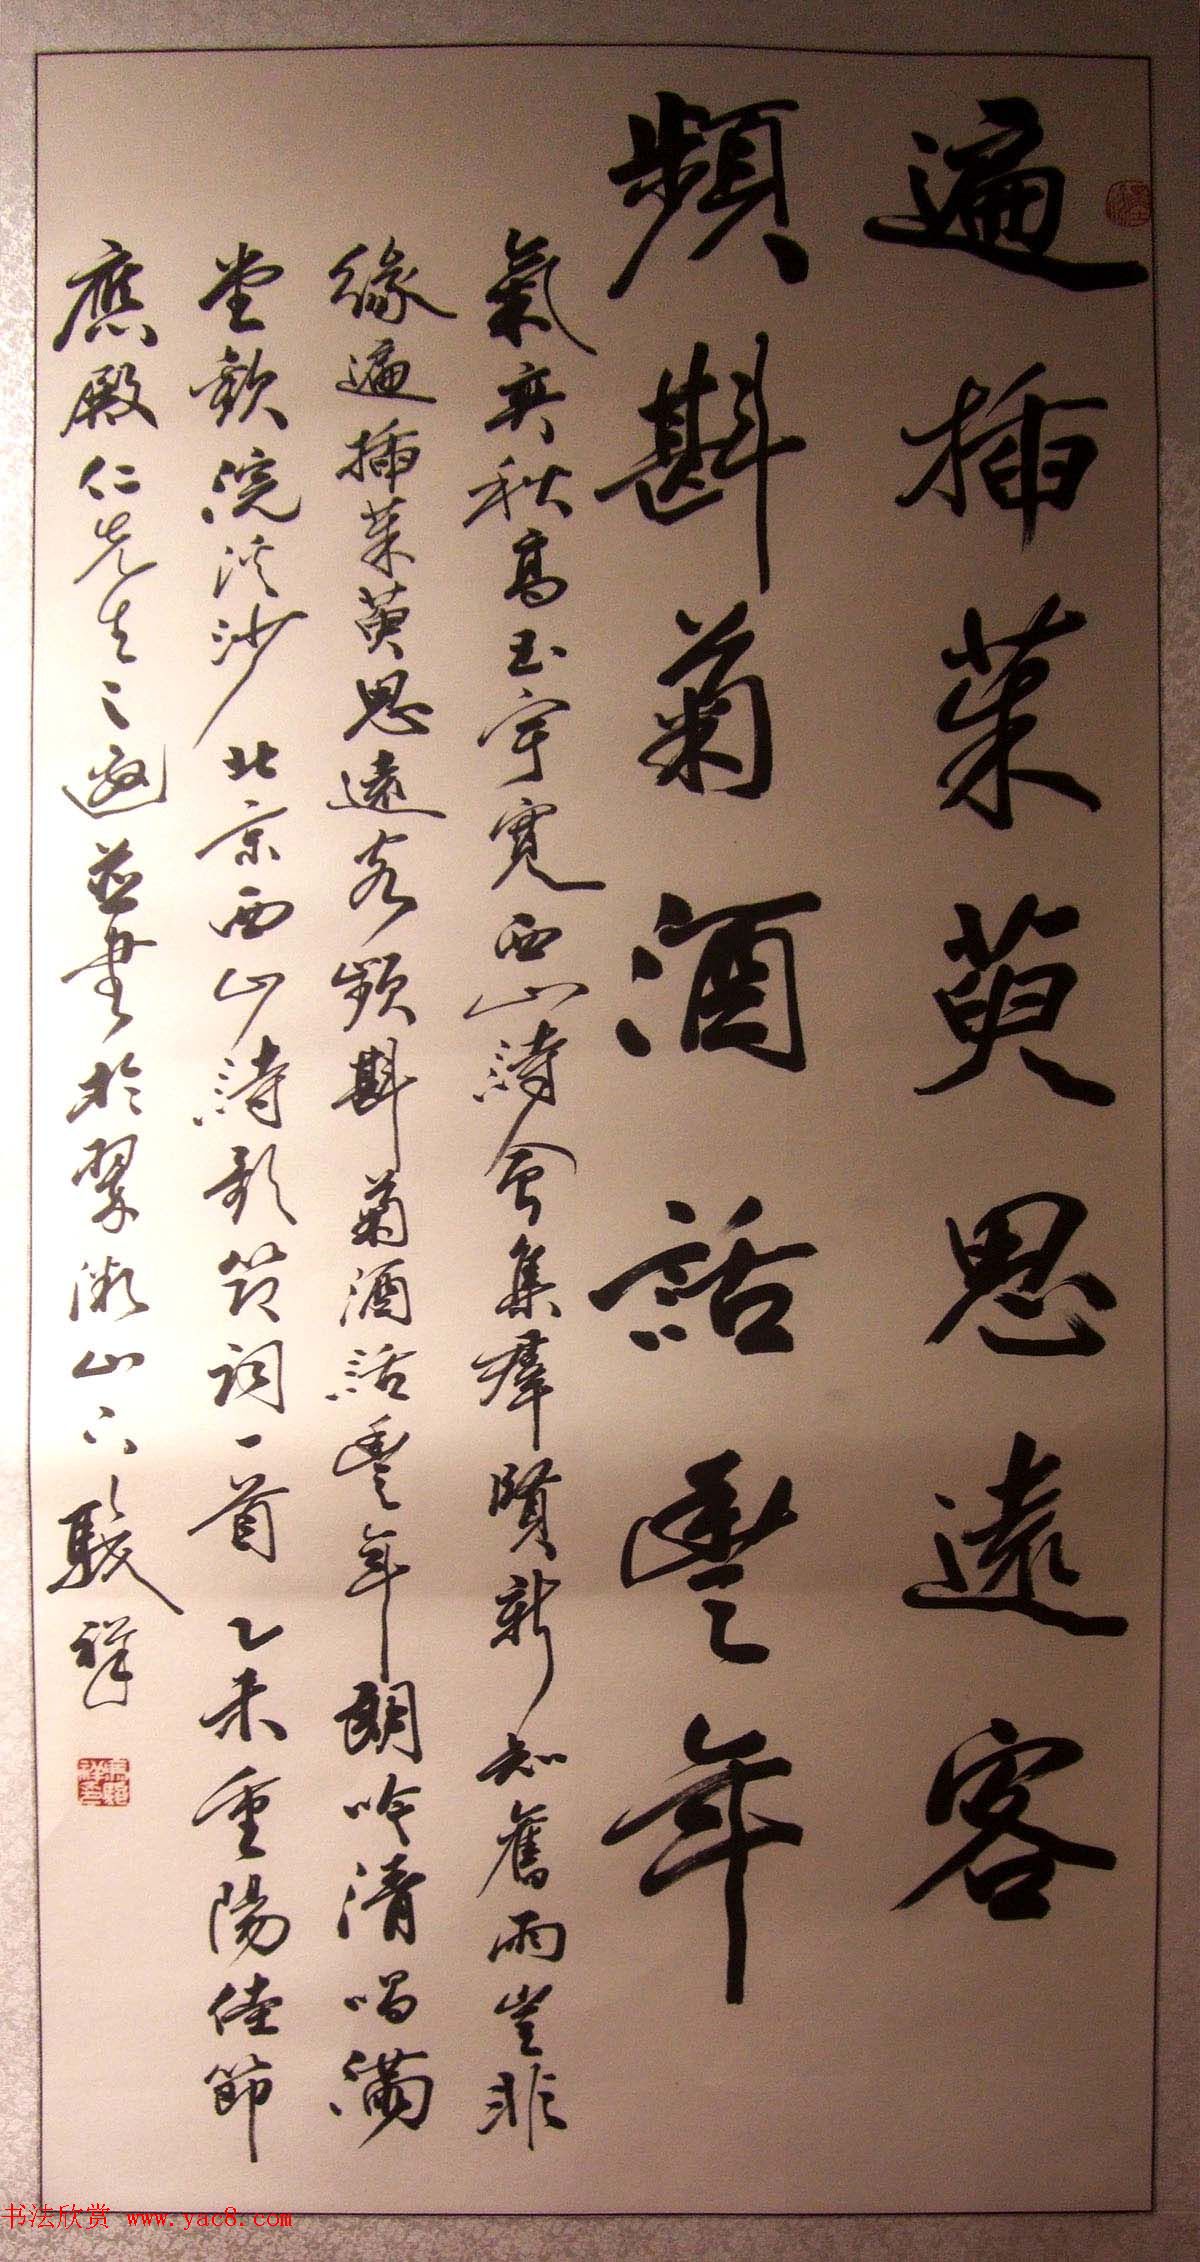 遍插茱萸思遠客
頻斟菊酒話豐年
氣爽秋高玉宇寬西山詩會集群賢新知舊雨豈非
緣遍插茱萸思遠客頻斟菊酒話豐年朗吟清唱滿
堂歡浣溪沙北京西山詩歌節詞一首乙未重陽佳節
應殿仁先生之邀並書於翠微山下駿祥
书法欣赏 www.yac8.com